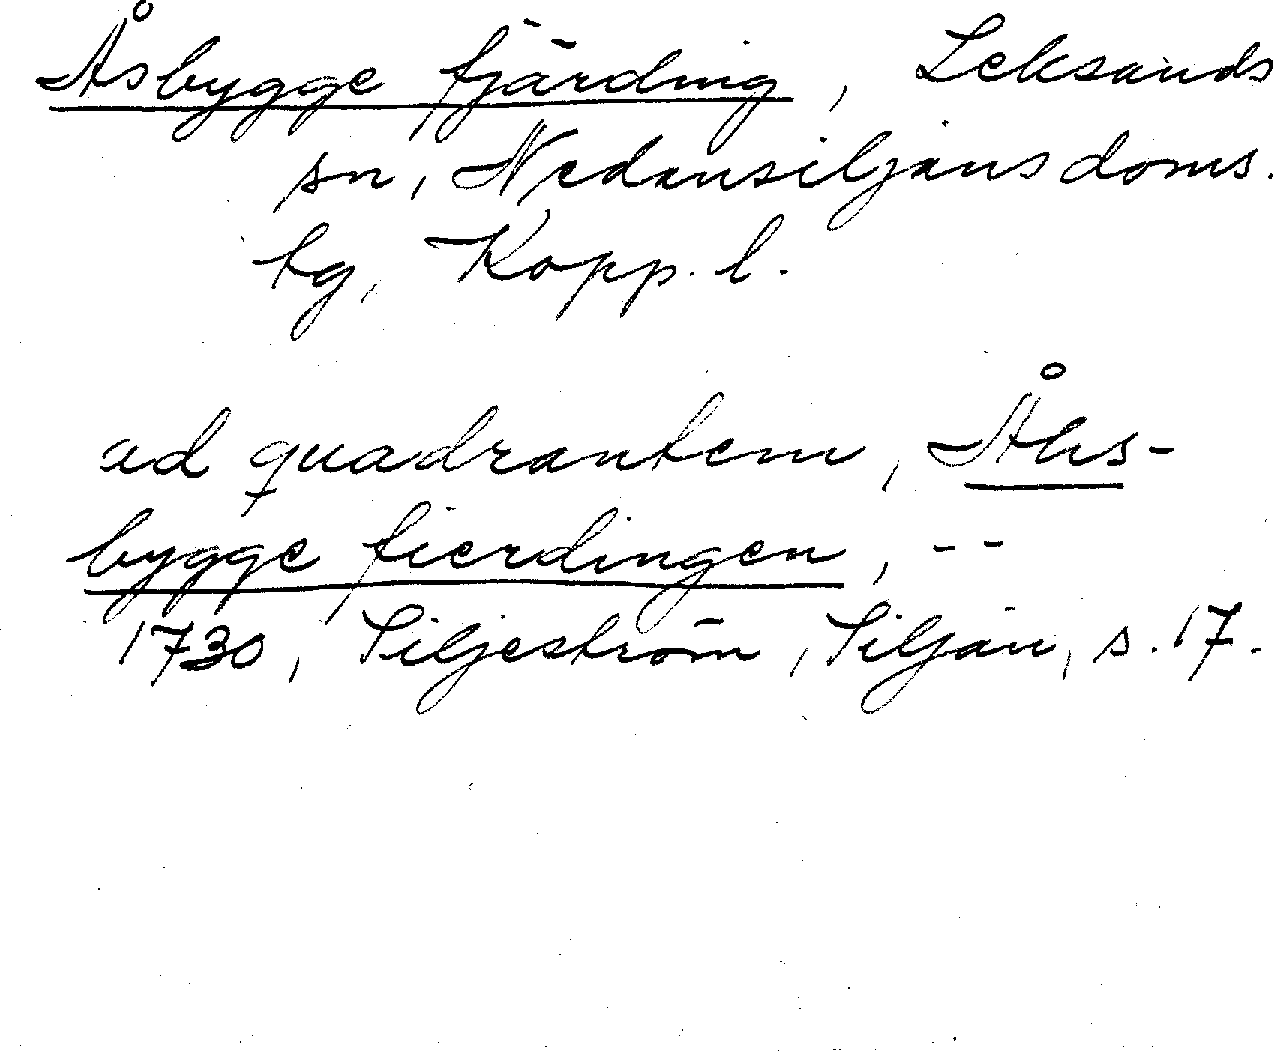 Åsbygge fjärding, Leksands
sn, Nedansiljans doms.
tg, Kopp. l.
ad quadrantem, Åhs-
bygge fierdingen, --
1730, Siljeström, Siljan, s. 17.